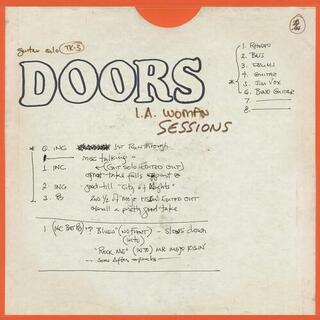 guitar solo TK-3
DOORS
L.A. WOMAN
SESSIONS
1. RHODES
2. BASS
3. DRUMS
4. GUITAR
5. JIM VOX
6. BAND GUITAR
7.
8.
0. INC 1st Run through
misc talking
1. INC (GUIT SOLO EDITED OUT)
take falls apart
2 INC good-till "City of Nights"
3. 2nd 1/2 of MOJO EDITED OUT
overall a pretty good take
1 "? Blues" (NO FRONT) - Slows down
(INTO)
"ROCK ME" (INTO) MR MOJO RISIN'